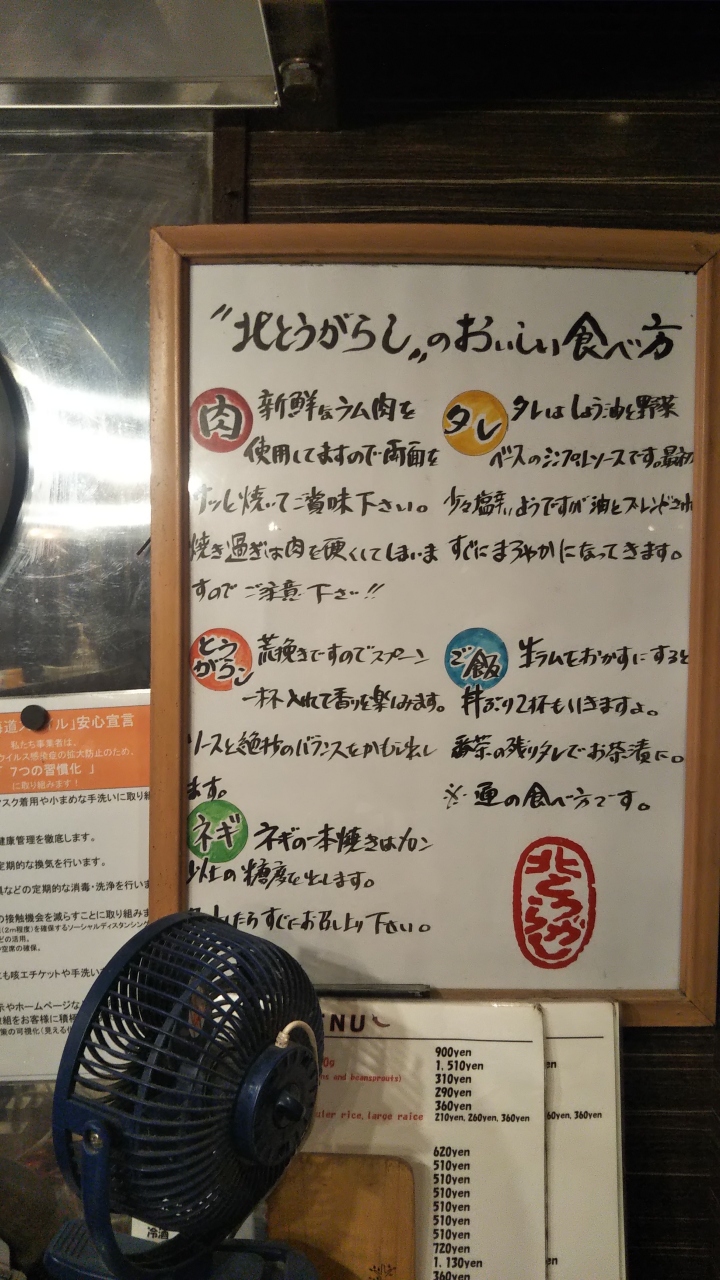 "北とうがらし"のおいしい食べ方
肉 新鮮なラム肉を
使用してますので両面を
サッと焼いてご賞味下さい。
焼き過ぎは肉を硬くしてしまいま
すので ご注意下さい!!
タレ タレはしょう油と野菜
ベースのシンプルソースです。最初
少々塩辛いようですが油とブレンドされ
すぐにまろやかになってきます。
とうがらし 荒挽きですのでスプーン
一杯入れて香りを楽しみます。
ソースと絶妙のバランスをかもし出し
ます。
ご飯 生ラムをおかずにすると
丼ぶり2杯もいきますよ。
番茶の残りタレでお茶漬に。
※ 通の食べ方です。
ネギ ネギの一本焼きはメロン
以上の糖度を出します。
たらすぐにお召し上り下さい。
北とうがらし
道スタイル」安心宣言
私たち事業者は、
ウイルス感染症の拡大防止のため、
「7つの習慣化」
に取り組みます!
マスク着用や小まめな手洗いに取り組
健康管理を徹底します。
定期的な換気を行います。
具などの定期的な消毒・洗浄を行いま
の接触機会を減らすことに取り組みま
(2m程度)を確保するソーシャルディスタンシング
どの活用。
空席の確保。
にも咳エチケットや手洗い
示やホームページな
取組をお客様に積極
策の可視化(見える化
ENU
900yen
1.510yen
ns and beansprouts) 310yen
290yen
360yen
uler rice, large raice 210yen, 260yen, 360yen
620yen
510yen
510yen
510yen
510yen
510yen
510yen
720yen
1.130yen
360yen
en
60yen, 360yen
en
冷酒